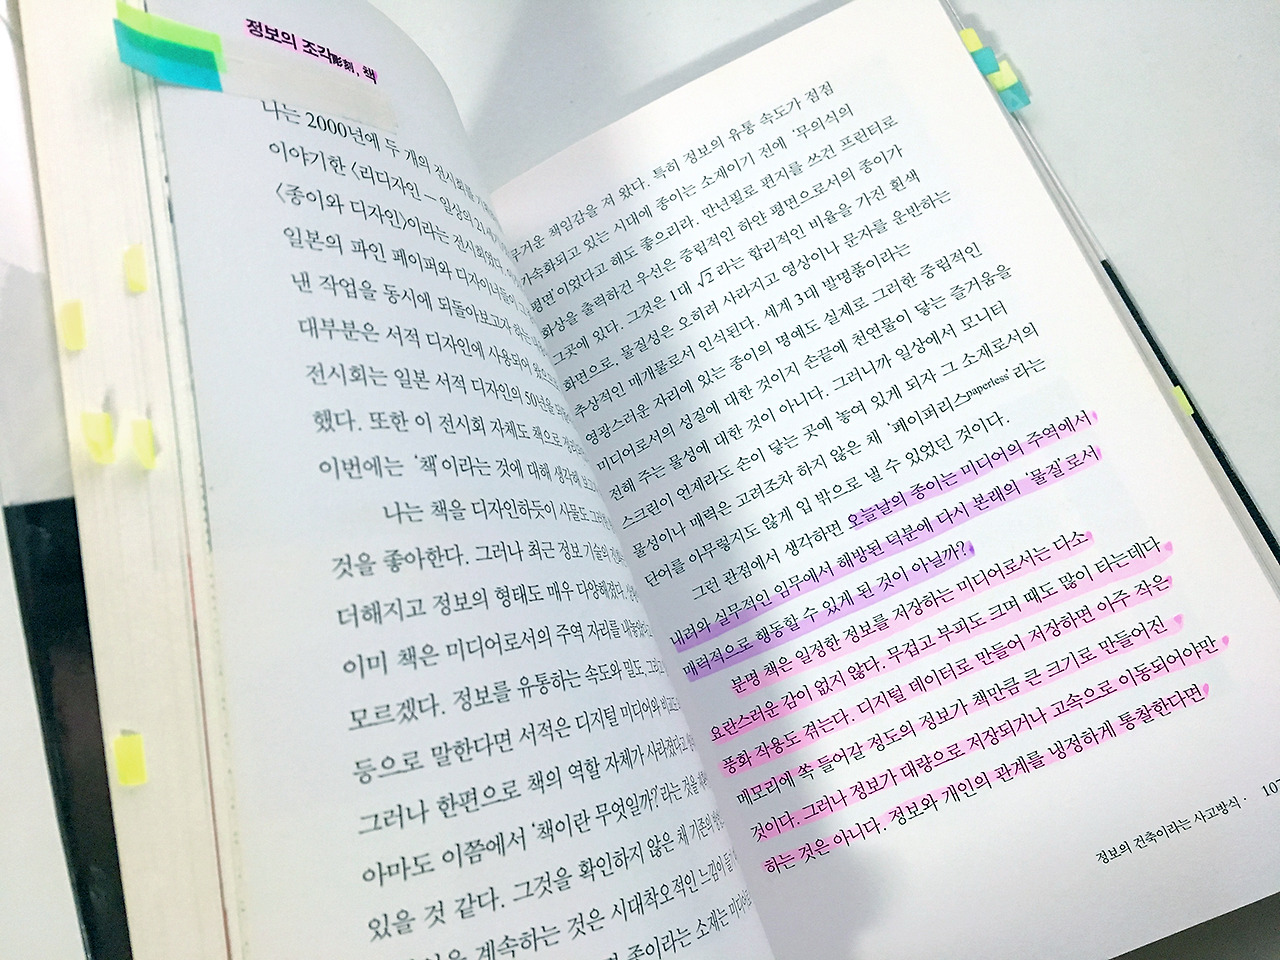 정보의 조각彫刻, 책
나는 2000년에 두 개의 전시회를
이야기한 〈리디자인 – 일상의 21세기
〈종이와 디자인〉이라는 전시회였다.
일본의 파인 페이퍼와 디자이너들이
낸 작업을 동시에 되돌아보고자 하는
대부분은 서적 디자인에 사용되어 왔으므로
전시회는 일본 서적 디자인의 50년을
했다. 또한 이 전시회 자체도 책으로
이번에는 ‘책’이라는 것에 대해 생각해 보고
나는 책을 디자인하듯이 사물도
것을 좋아한다. 그러나 최근 정보 기술의
더해지고 정보의 형태도 매우 다양해졌다.
이미 책은 미디어로서의 주역 자리를 내놓았
모르겠다. 정보를 유통하는 속도와 밀도, 그리고
등으로 말한다면 서적은 디지털 미디어와 비교
그러나 한편으로 책의 역할 자체가 사라졌다고
아마도 이쯤에서 ‘책이란 무엇일까?’라는 것을
있을 것 같다. 그것을 확인하지 않은 채 기존의
계속하는 것은 시대착오적인 느낌이 들
종이라는 소재는 미디어
무거운 책임감을 져 왔다. 특히 정보의 유통 속도가 점점
가속화되고 있는 시대에 종이는 소재이기 전에 ‘무의식의
평면’이었다고 해도 좋으리라. 만년필로 편지를 쓰건 프린터로
화상을 출력하건 우선은 중립적인 하얀 평면으로서의 종이가
그곳에 있다. 그것은 1 대 √2 라는 합리적인 비율을 가진 흰색
화면으로, 물질성은 오히려 사라지고 영상이나 문자를 운반하는
추상적인 매개물로서 인식된다. 세계 3대 발명품이라는
영광스러운 자리에 있는 종이의 명예도 실제로 그러한 중립적인
미디어로서의 성질에 대한 것이지 손끝에 천연물이 닿는 즐거움을
전해 주는 물성에 대한 것이 아니다. 그러니까 일상에서 모니터
스크린이 언제라도 손이 닿는 곳에 놓여 있게 되자 그 소재로서의
물성이나 매력은 고려조차 하지 않은 채 ‘페이퍼리스paperless’라는
단어를 아무렇지도 않게 입 밖으로 낼 수 있었던 것이다.
그런 관점에서 생각하면 오늘날의 종이는 미디어의 주역에서
내려와 실무적인 임무에서 해방된 덕분에 다시 본래의 ‘물질’로서
매력적으로 행동할 수 있게 된 것이 아닐까?
분명 책은 일정한 정보를 저장하는 미디어로서는 다소
요란스러운 감이 없지 않다. 무겁고 부피도 크며 때도 많이 타는데다
풍화 작용도 겪는다. 디지털 데이터로 만들어 저장하면 아주 작은
메모리에 쏙 들어갈 정도의 정보가 책만큼 큰 크기로 만들어진
것이다. 그러나 정보가 대량으로 저장되거나 고속으로 이동되어야만
하는 것은 아니다. 정보와 개인의 관계를 냉정하게 통찰한다면,
정보의 건축이라는 사고방식 ·